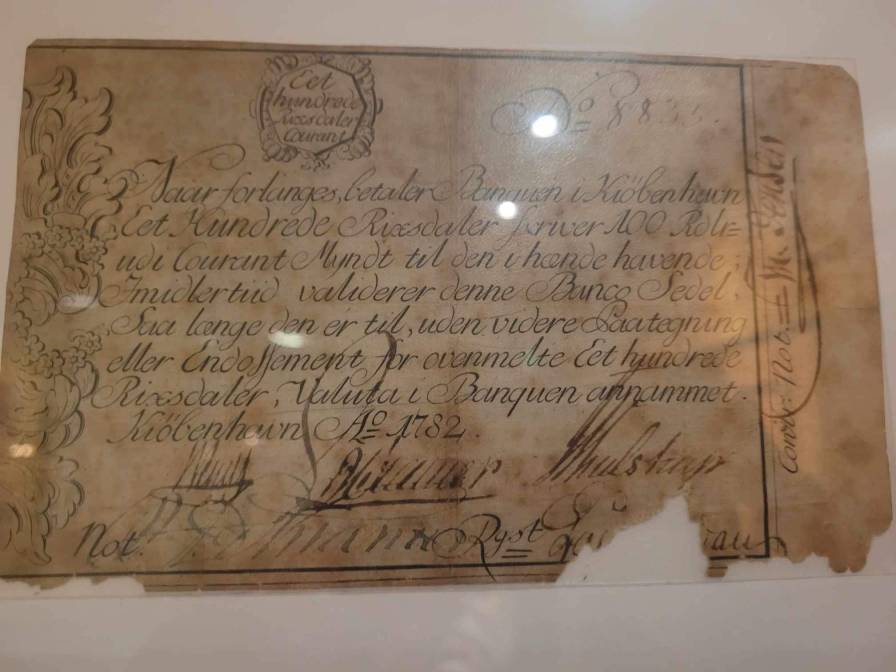 Eet
hundrede
Rixsdaler
Courant
No 88
Naar forlanges, betaler Banquen i Kiöbenhavn
Eet Hundrede Rixsdaler skriver 100 Rdlr=
udi Courant Myndt til den i hænde havende;
Imidlertiid validerer denne Banco Sedel,
Saa længe den er til, uden videre Paategning
eller Endossement for ovenmelte Eet hundrede
Rixsdaler, Valuta i Banquen annammet.
Kiöbenhavn Ao 1782.
Not.
Ryst